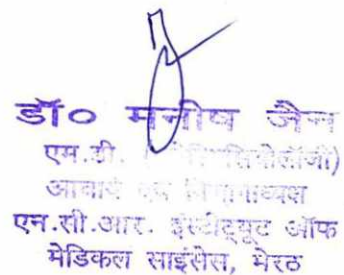 डॉ० मनीष जैन
एम.डी.
आचार्य एवं विभागाध्यक्ष
एन.सी.आर. इंस्टीट्यूट ऑफ
मेडिकल साइंसेस, मेरठ